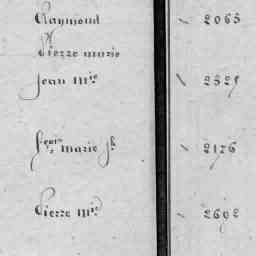 Raymond \ 2065
Pierre marie
Jean M^ie \ 2529
f^çois marie J^h \ 2176
Pierre M^ie \ 2692